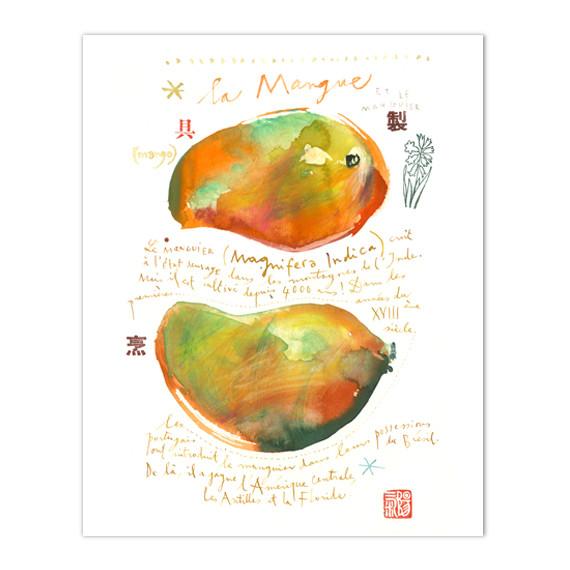 la Mangue
ET LE
MANGUIER
具
製
(mango)
Le MANGUIER (Magnifera Indica) croît
à l'état sauvage dans les montagnes de l'Inde.
Mais il est cultivé depuis 4000 ans! Dans les
premières années du
XVIII ème
siècle,
烹
les
portugais
ont introduit le manguier dans leurs possessions
du Brésil.
De là il a gagné l'Amérique centrale,
les Antilles et la Floride